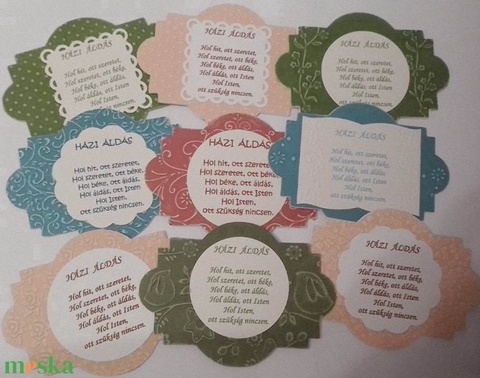 HÁZI ÁLDÁS
Hol hit, ott szeretet,
Hol szeretet, ott béke,
Hol béke, ott áldás,
Hol áldás, ott Isten
Hol Isten,
ott szükség nincsen.
HÁZI ÁLDÁS
Hol hit, ott szeretet,
Hol szeretet, ott béke,
Hol béke, ott áldás,
Hol áldás, ott Isten
Hol Isten,
ott szükség nincsen.
HÁZI ÁLDÁS
Hol hit, ott szeretet,
Hol szeretet, ott béke,
Hol béke, ott áldás,
Hol áldás, ott Isten
Hol Isten,
ott szükség nincsen.
HÁZI ÁLDÁS
Hol hit, ott szeretet,
Hol szeretet, ott béke,
Hol béke, ott áldás,
Hol áldás, ott Isten
Hol Isten,
ott szükség nincsen.
HÁZI ÁLDÁS
Hol hit, ott szeretet,
Hol szeretet, ott béke,
Hol béke, ott áldás,
Hol áldás, ott Isten
Hol Isten,
ott szükség nincsen.
HÁZI ÁLDÁS
Hol hit, ott szeretet,
Hol szeretet, ott béke,
Hol béke, ott áldás,
Hol áldás, ott Isten
Hol Isten,
ott szükség nincsen.
HÁZI ÁLDÁS
Hol hit, ott szeretet,
Hol szeretet, ott béke,
Hol béke, ott áldás,
Hol áldás, ott Isten
Hol Isten,
ott szükség nincsen.
HÁZI ÁLDÁS
Hol hit, ott szeretet,
Hol szeretet, ott béke,
Hol béke, ott áldás,
Hol áldás, ott Isten,
Hol Isten,
ott szükség nincsen.
HÁZI ÁLDÁS
Hol hit, ott szeretet,
Hol szeretet, ott béke,
Hol béke, ott áldás,
Hol áldás, ott Isten
Hol Isten,
ott szükség nincsen.
meska